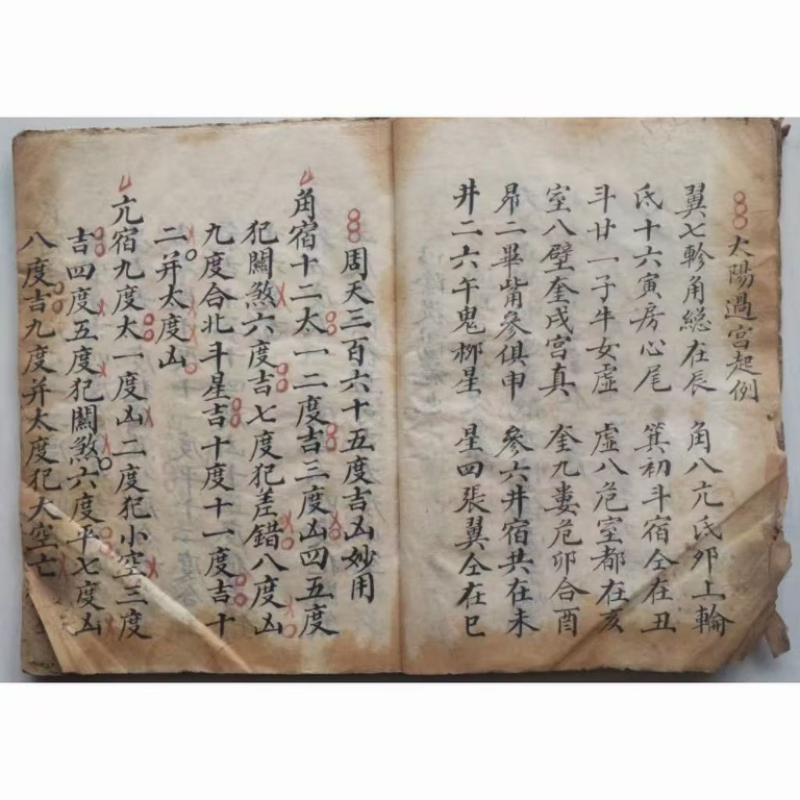 太陽過宮起例
翼七軫角総在辰 角八亢氐夘上輪
氐十六寅房心尾 箕初斗宿仝在丑
斗廿一子牛女虛 虛八危室都在亥
室八壁奎戌宮真 奎九婁危卯合酉
昴二畢觜參俱申 參六井宿共在未
井二六午鬼栁星 星四張翼仝在巳
周天三百六十五度吉凶妙用
角宿十二太一二度吉三度凶四五度
犯關煞六度吉七度犯差錯八度凶
九度合北斗星吉十度十一度吉十
二并太度凶
亢宿九度太一度凶二度犯小空三度
吉四度五度犯關煞六度平七度凶
八度吉九度并太度犯大空亡